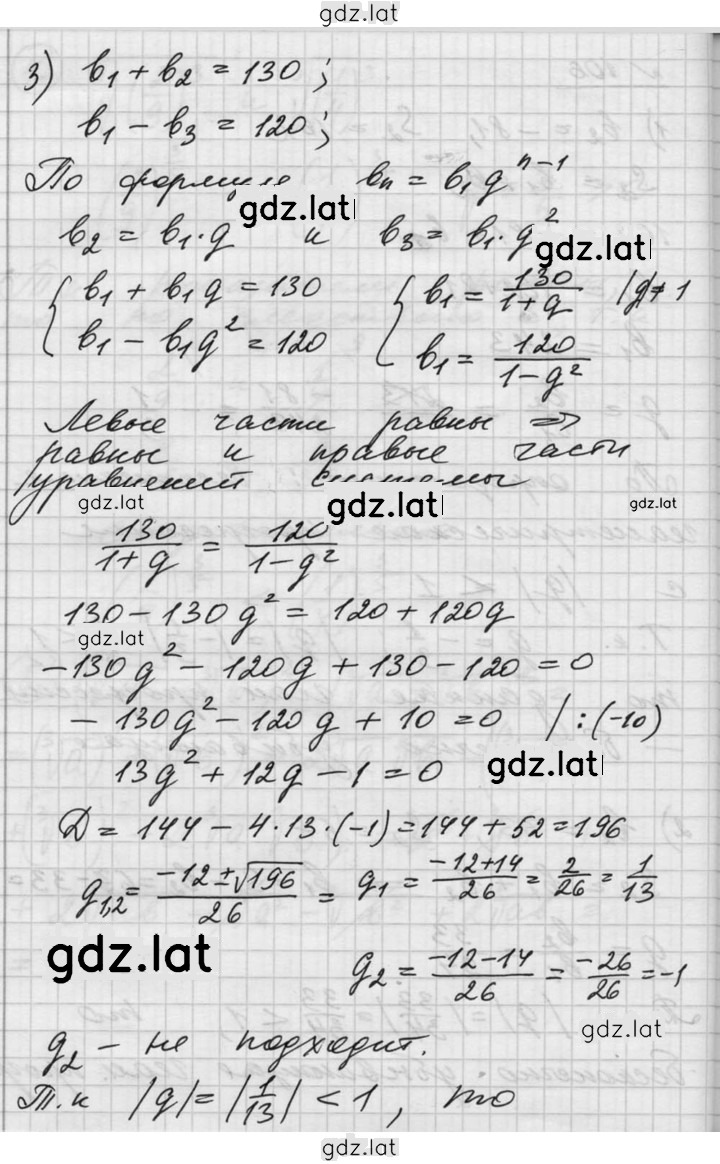 gdz.lat
3) b₁ + b₂ = 130;
b₁ - b₃ = 120;
По формуле bₙ = b₁gⁿ⁻¹
gdz.lat
b₂ = b₁·g и b₃ = b₁·g²
gdz.lat
{ b₁ + b₁g = 130 { b₁ = 130/(1+g) |g|≠1
{ b₁ - b₁g² = 120 { b₁ = 120/(1-g²)
Левые части равны =>
равны и правые части
уравнений системы
gdz.lat gdz.lat gdz.lat
130/(1+g) = 120/(1-g²)
130 - 130g² = 120 + 120g
gdz.lat
-130g² - 120g + 130 - 120 = 0
-130g² - 120g + 10 = 0 /:(-10)
13g² + 12g - 1 = 0 gdz.lat
D = 144 - 4·13·(-1) = 144 + 52 = 196
g₁,₂ = (-12±√196)/26 = g₁ = (-12+14)/26 = 2/26 = 1/13
gdz.lat
g₂ = (-12-14)/26 = -26/26 = -1
gdz.lat
g₂ - не подходит.
Т.к |g| = |1/13| < 1, то
gdz.lat